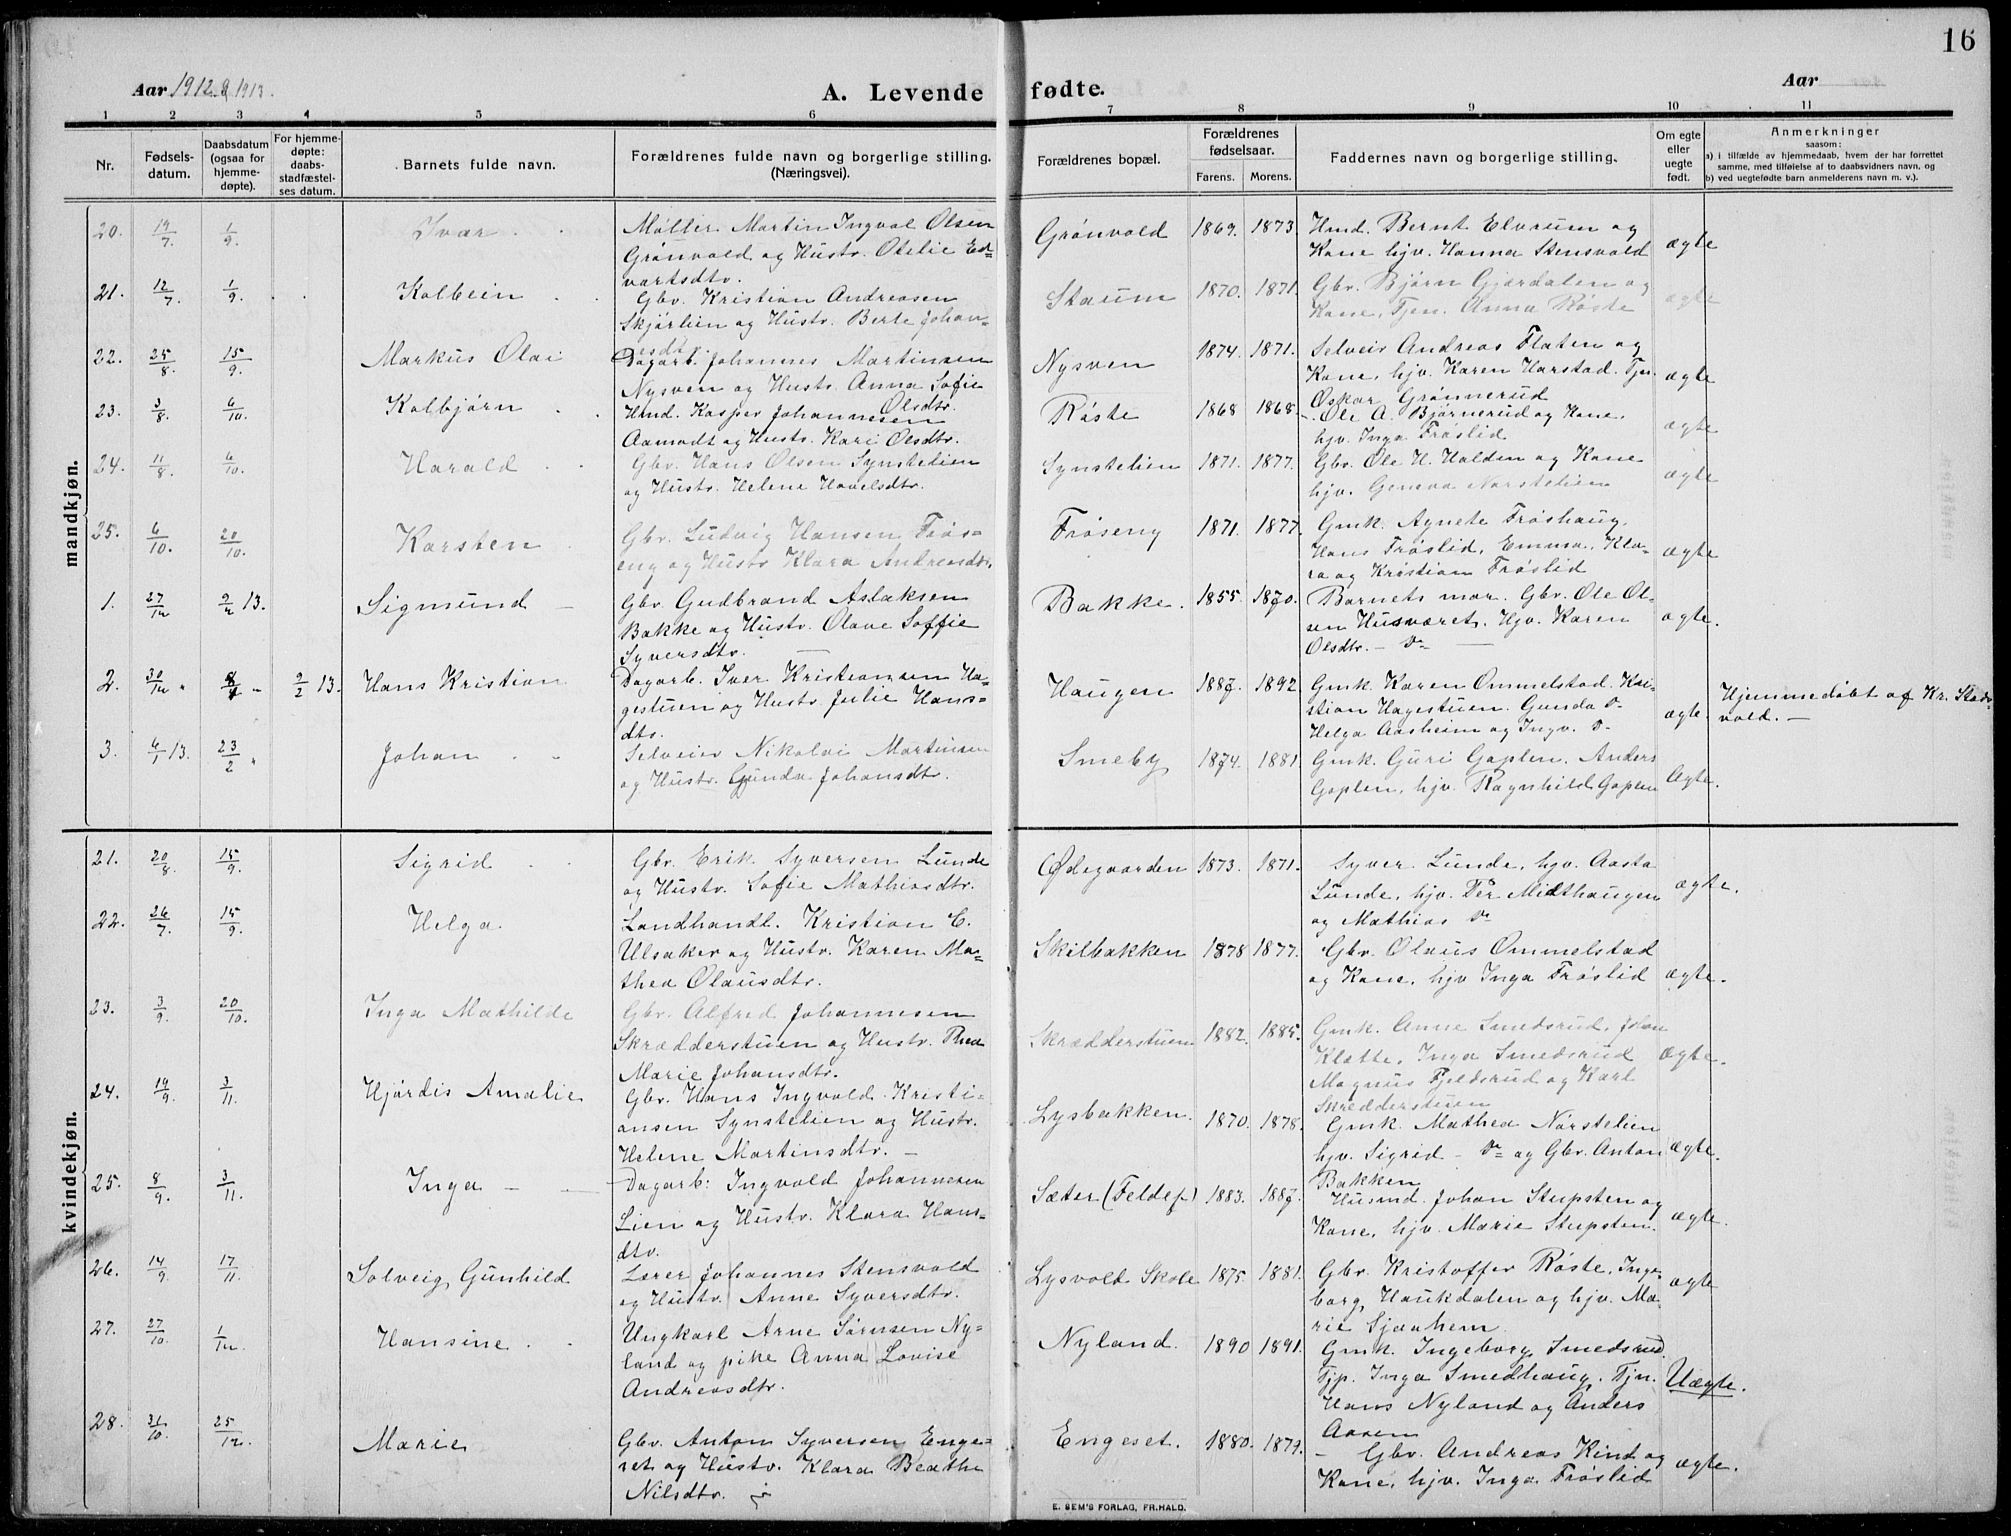 16
Aar 1912 & 1913.
A. Levende fødte.
Aar
1 2 3 4 5 6 7 8 9 10 11
Nr.
Fødsels-
datum.
Daabsdatum
(ogsaa for
hjemme-
døpte).
For hjemme-
døpte:
daabs-
stadfæstel-
ses datum.
Barnets fulde navn.
Forældrenes fulde navn og borgerlige stilling.
(Næringsvei).
Forældrenes bopæl.
Forældrenes
fødselsaar.
Farens. Morens.
Faddernes navn og borgerlige stilling.
Om egte
eller
uegte
født.
Anmerkninger
saasom:
a) i tilfælde av hjemmedaab, hvem der har forrettet
samme, med tilføielse af to daabsvidners navn, og
b) ved uegtefødte barn anmelderens navn m. v.).
mandkjøn.
20. 19/7. 1/9. Ivar Møller Martin Ingval Olsen Grønvold 1869. 1873 Hmd. Bernt Elvrum og ægte
Grønvold og Hustr. Otelie Ed= Kone hjv. Hanna Stensvold
vartsdtr.
21. 12/7. 1/9. Kolbein Gbr. Kristian Andreasen Staum 1870. 1871. Gbr. Bjørn Gjørdalen og ægte
Skjørlien og Hustr. Berte Johan= Kone, Tjen. Anna Røste
esdtr.
22. 25/8. 15/9. Markus Olai Dagarb. Johannes Martinsen Nysven 1874. 1871. Selveir Andreas Flaten og ægte
Nysven og Hustr. Anna Sofie Kone, hjv. Karen Harstad. Tjn.
Olsdtr. Oskar Grønnerud
23. 3/8. 6/10. Kolbjørn Hmd. Kasper Johannesen Røste 1868 1868. Ole A. Bjørnerud og Kone, ægte
Aamodt og Hustr. Kari Olsdtr. hjv. Inga Frøslid
24. 11/8. 6/10. Harald Gbr. Hans Olsen Synstelien Synstelien 1871. 1877. Gbr. Ole H. Halden og Kone ægte
og Hustr. Helene Hovelsdtr. hjv. Geneva Nørstelien
25. 6/10. 20/10. Karsten Gbr. Ludvig Hansen Frøs= Frøseng 1871. 1877. Gmk. Agnete Frøshaug, ægte
eng og Hustr Klara Andreasdtr. Hans Frøslid, Emma, Kla=
ra og Kristian Frøslid
1. 27/12 9/2 13. Sigmund Gbr Gudbrand Aslaksen Bakke. 1855. 1870. Barnets mor. Gbr. Ole Ol= ægte.
Bakke og Hustr. Olave Soffie sen Husværet. Hjv. Karen
Syversdtr. Olsdtr. –
2. 30/12 " 8/1 " 9/2 13. Hans Kristian Dagarb. Iver Kristiansen Ha= Haugen 1887. 1892 Gmk. Karen Ommelstad. Kri= ægte. Hjemmedøbt af Kr. Stads
gestuen og Hustr Julie Hans= stian Hagestuen. Gunda Do vold. –
dtr. Helga Aasheim og Ingv. Do
3. 6/1 13. 23/2 " Johan Selveier Nikolai Martinsen Smeby 1874. 1881. Gmk. Guri Goplen. Anders Ægte.
og Hustr. Gunda Johansdtr. Goplen, hjv. Ragnhild Goplen
kvindekjøn.
21. 20/8. 15/9. Sigrid Gbr. Erik Syversen Lunde Ødegaarden 1873. 1871. Syver Lunde, hjv. Aasta ægte.
og Hustr. Sofie Mathiasdtr. Lunde, hjv. Per Midthaugen
og Mathias Do
22. 26/7. 15/9. Helga Landhandl. Kristian E. Skilbakken 1878 1877. Gbr. Olaus Ommelstad ægte.
Ulsaker og Hustr. Karen Ma= og Kone, hjv Inga Frøslid
thea Olausdtr.
23. 3/9. 20/10. Inga Mathilde Gbr. Alfred Johannesen Skrædderstuen 1882. 1885. Gmk. Anne Smedsrud, Johan ægte.
Skrædderstuen og Hustr. Thea Kløtte, Inga Smedsrud
Marie Johansdtr. Magnus Fjeldsrud og Karl
Skredderstuen
24. 19/9. 3/11. Hjørdis Amalie Gbr. Hans Ingvald Kristi= Lysbakken. 1870. 1878. Gmk. Mathea Nørstelien ægte.
ansen Synstelien og Hustr. hjv. Sigrid – Do og Gbr. Anton
Helene Martinsdtr. – Bakken
25. 8/9. 3/11. Inga Dagarb: Ingvald Johannesen Sæter (Feldef.) 1883. 1887. Husmd. Johan Stupsten og ægte.
Lien og Hustr. Klara Hans= Kone, hjv. Marie Stupsten.
dtr.
26. 14/9. 17/11. Solveig Gunhild Lærer Johannes Stensvold Lysvold Skole 1875. 1881. Gbr. Kristoffer Røste, Inge= ægte
og Hustr. Anne Syversdtr. borg Haukdalen og hjv. Ma=
rie Sjaahem
27. 27/10. 1/12. Hansine Ungkarl Arne Sørnsen Ny= Nyland. 1890 1891. Gmk. Ingeborg Smedsrud. Uægte.
land og pike Anna Lovise Tjp. Inga Smedhaug, Tjn.
Andreasdtr. Hans Nyland og Anders
Aasen
28. 31/10. 25/12. Marie Gbr. Anton Syversen Enge= Engeset. 1880. 1879. – Gbr. Andreas Kind og ægte.
set og Hustr. Klara Beathe Kone, hjv. Inga Frøslid
Nilsdtr.
E. SEM'S FORLAG, FR.HALD.